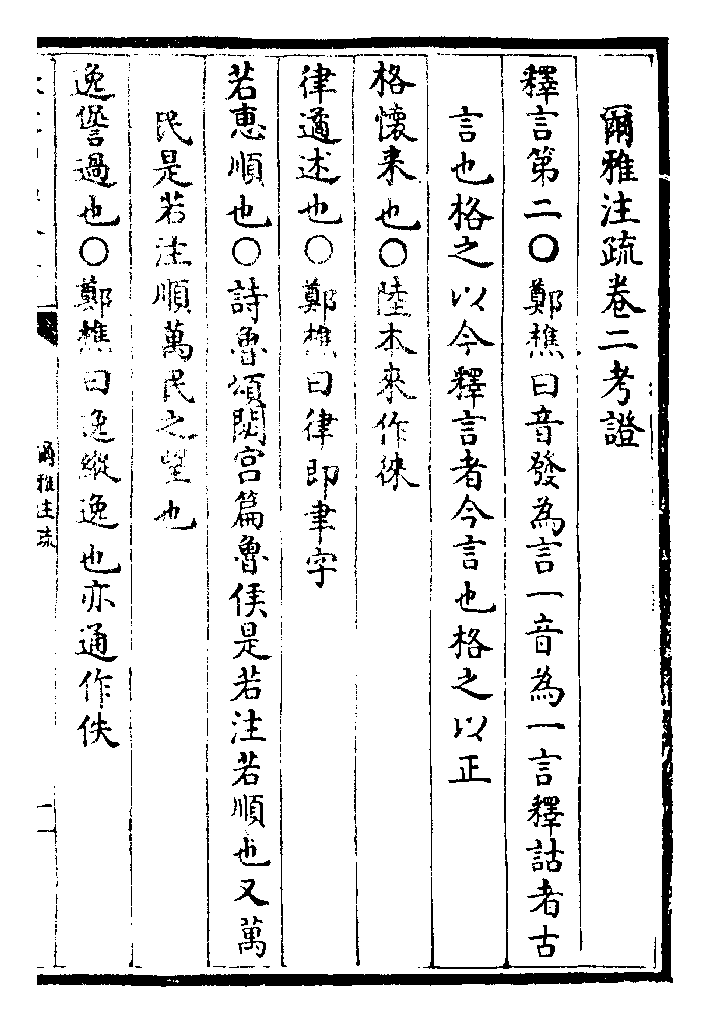 爾雅注疏卷二考證
釋言第二〇鄭樵曰音發為言一音為一言釋詁者古
言也格之以今釋言者今言也格之以正
格懷来也〇陸本來作徠
律遹述也〇鄭樵曰律即聿字
若惠順也〇詩魯頌閟宫篇魯侯是若注若順也又萬
民是若注順萬民之望也
逸諐過也〇鄭樵曰逸縱逸也亦通作佚
爾雅注疏